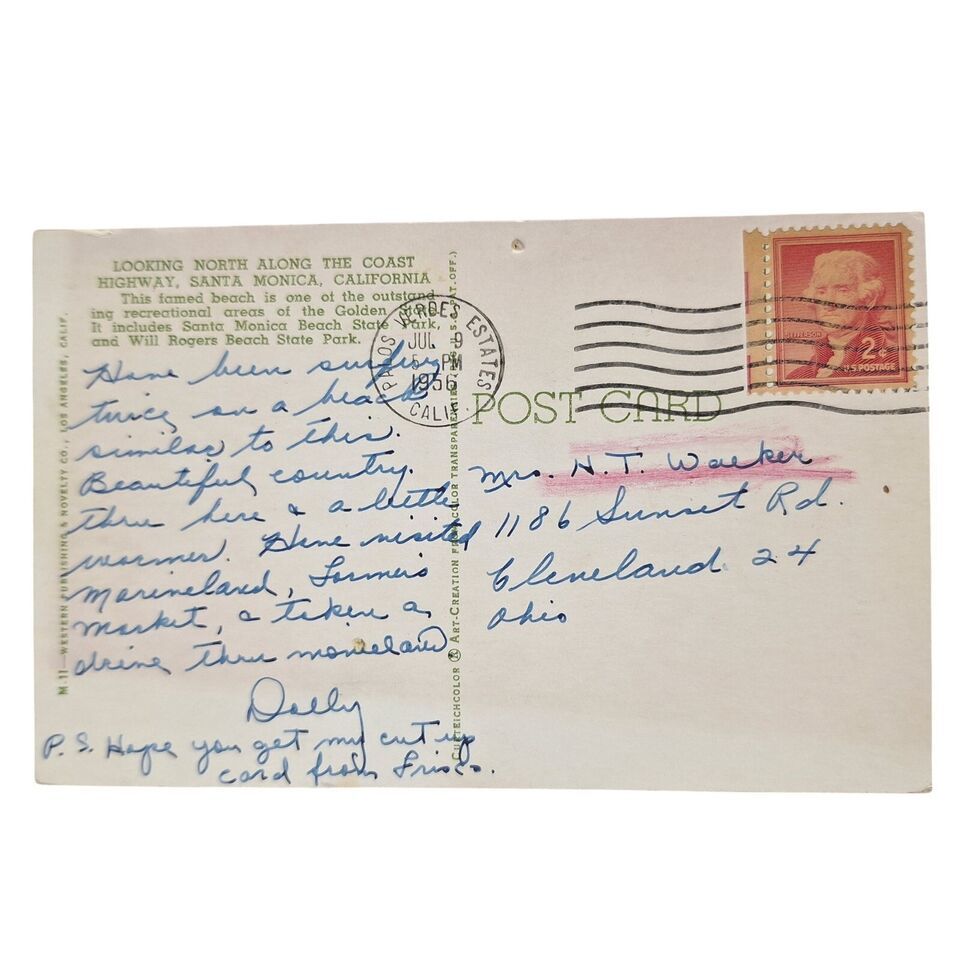 LOOKING NORTH ALONG THE COAST
HIGHWAY, SANTA MONICA, CALIFORNIA
This famed beach is one of the outstand-
ing recreational areas of the Golden State.
It includes Santa Monica Beach State Park,
and Will Rogers Beach State Park.
Have been surfing
twice on a beach
similar to this.
Beautiful country
thru here & a little
warmer. Have visited
Marineland, Farmers
Market, & taken a
drive thru movieland.
Dolly
P.S. Hope you get my cut up
card from Frisco.
M-11—WESTERN PUBLISHING & NOVELTY CO., LOS ANGELES, CALIF.
CURTEICHCOLOR ® ART-CREATION FROM COLOR TRANSPARENCY (REG. U.S.A. PAT. OFF.)
PALOS VERDES ESTATES
JUL 6
5 PM
1956
CALIF.
JEFFERSON
2¢
U.S. POSTAGE
POST CARD
Mrs. H. T. Walker
1186 Sunset Rd.
Cleveland 24
Ohio